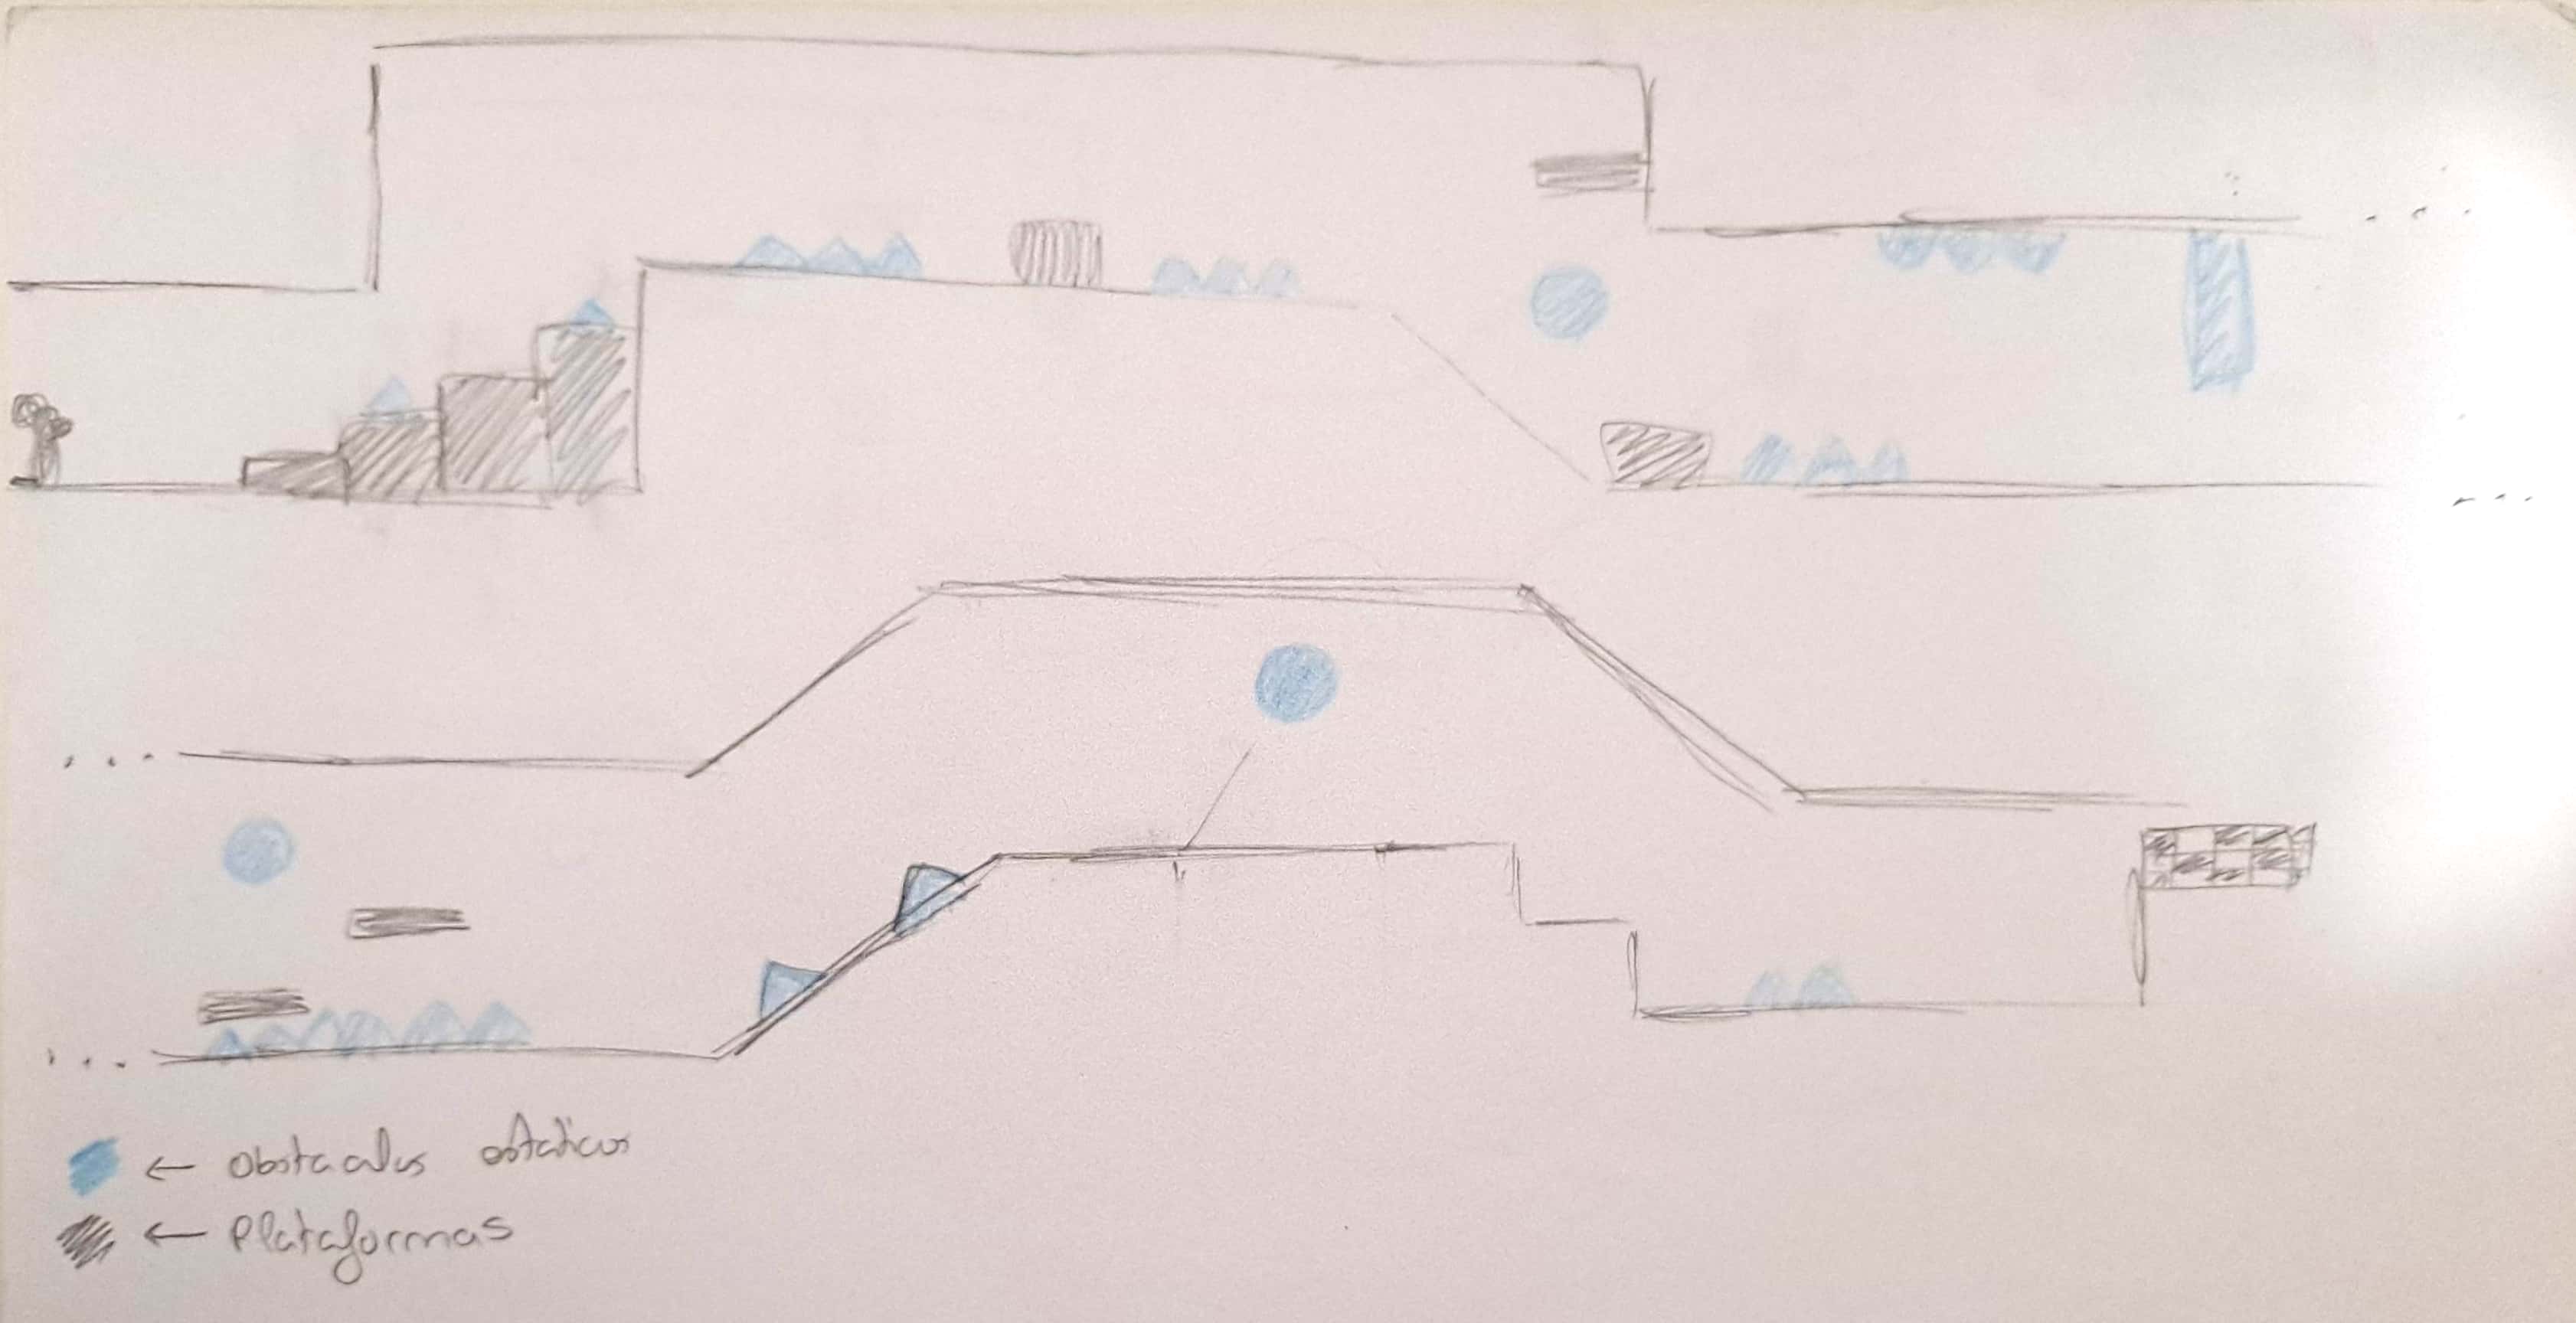 ← Obstaculos estaticos
← Plataformas